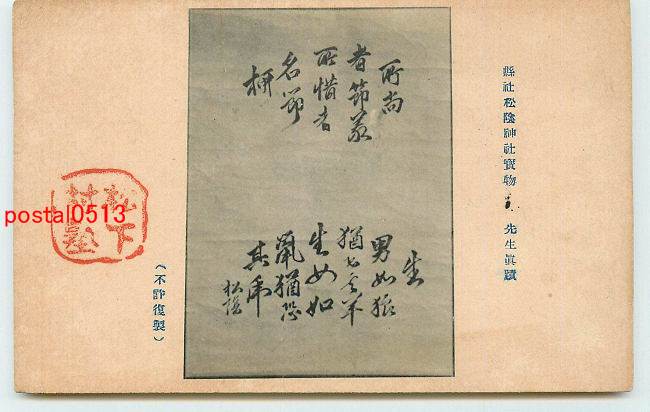 縣社松陰神社寳物 先生眞蹟
所尚
者節義
所惜者
名節
柄
生
男如狼
猶
生女如
鼠猶恐
其虎
松陰
松下
村塾
(不許復製)
postal0513